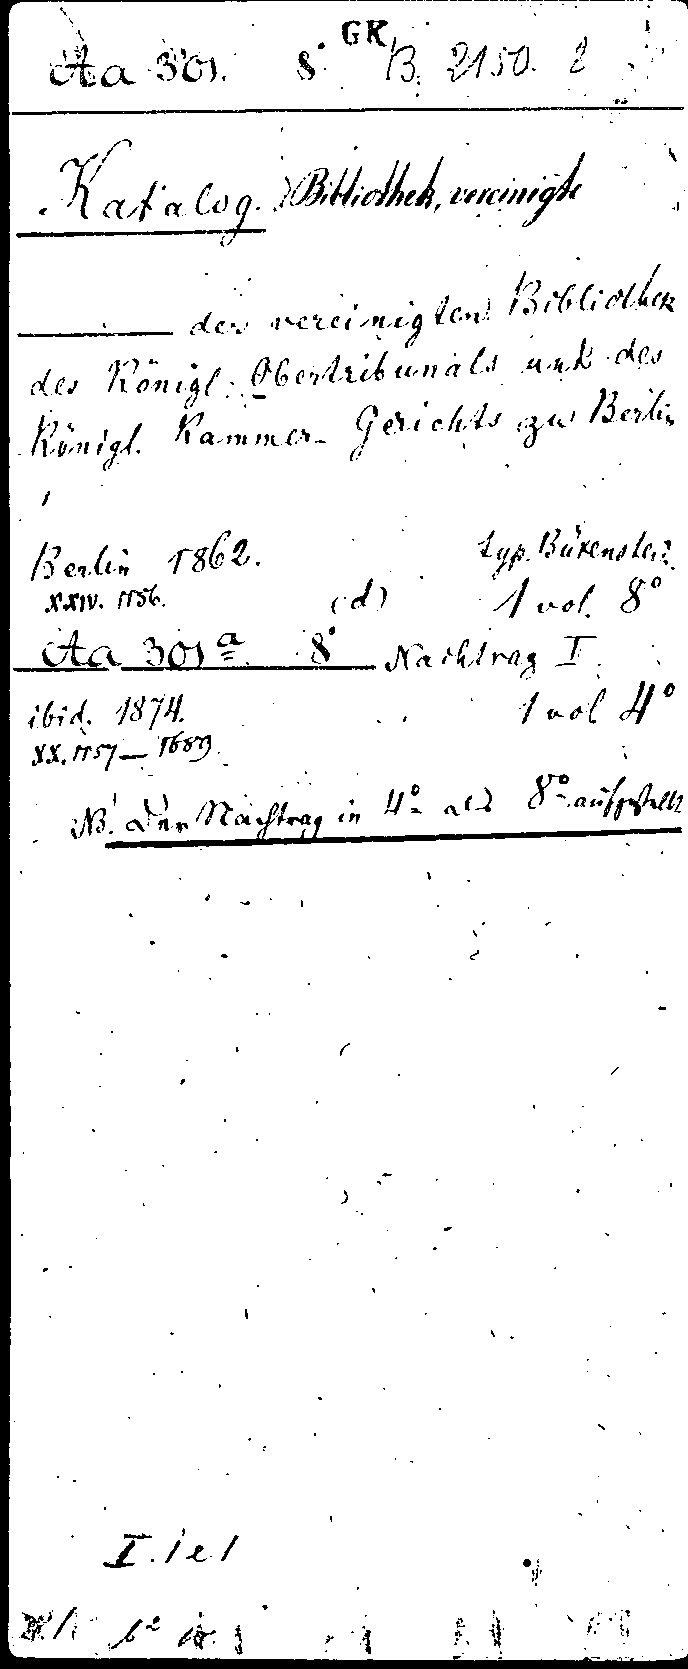 GK
Aa 301. 8° B. 2150. 2
Katalog. Bibliothek, vereinigte
——— der vereinigten Bibliothek
des Königl. Obertribunals und des
Königl. Kammer-Gerichts zu Berlin
Berlin 1862. typ. Büxenstein.
XXIV. 1156. (d) 1 vol. 8°
Aa 301a 8° Nachtrag I.
ibid. 1874. 1 vol 4°
XX. 1157—1689.
NB. Der Nachtrag in 4° als 8° aufgestellt
I. 1e1